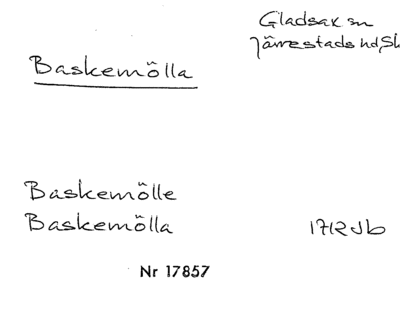 Gladsax sn
Järrestads hd, Sk
Baskemölla
Baskemölle
Baskemölla 1712 Jb
Nr 17857